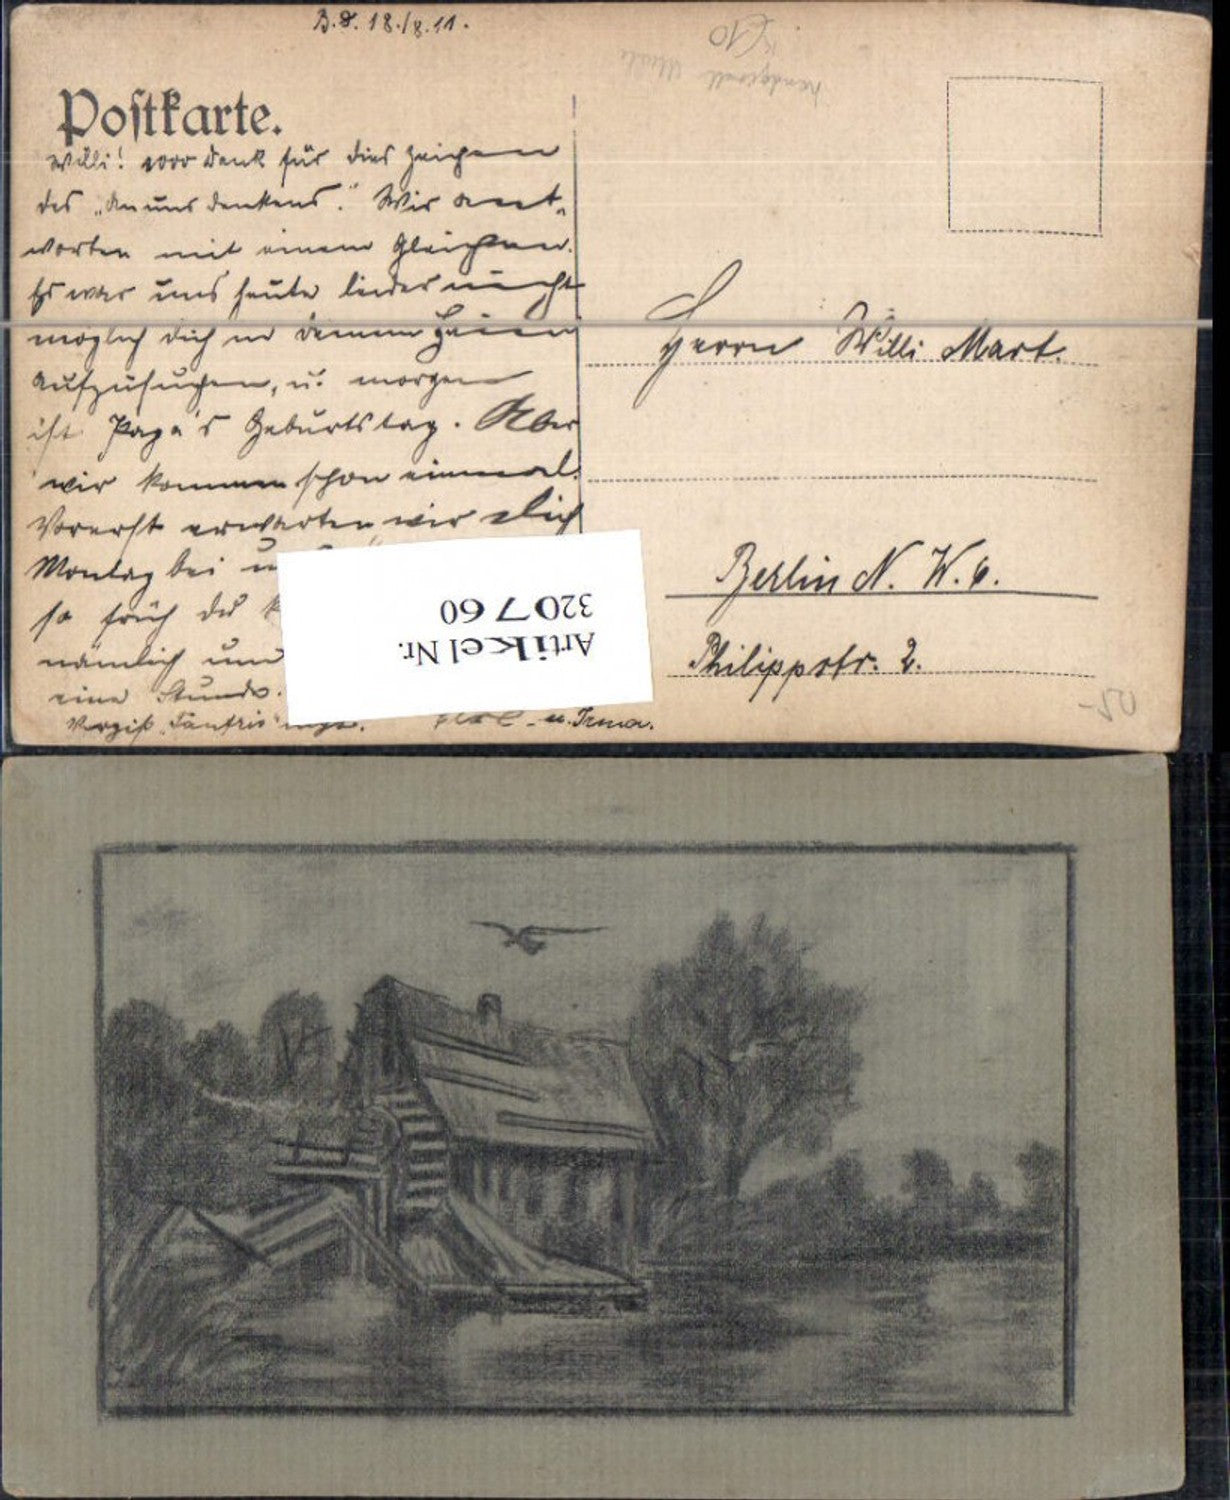 B. d. 18./8.11.
Postkarte.
Willi! 1000 Dank für dies Zeichen
des „An uns denkens“. Wir ant-
worten mit einem Gleichen.
Es war uns heute leider nicht
möglich dich in deinem
aufzusuchen, u. morgen
ist Papa's Geburtstag. Aber
wir kommen schon einmal.
Vorerst erwarten wir Dich
Montag bei
so früh du
nämlich um
eine Stunde.
Vergiß nicht. u. Irma.
Herrn Willi Mart.
Berlin N. W. 6.
Philippstr. 2.
Artikel Nr.
320760
handgemalt Mühle
10
-20